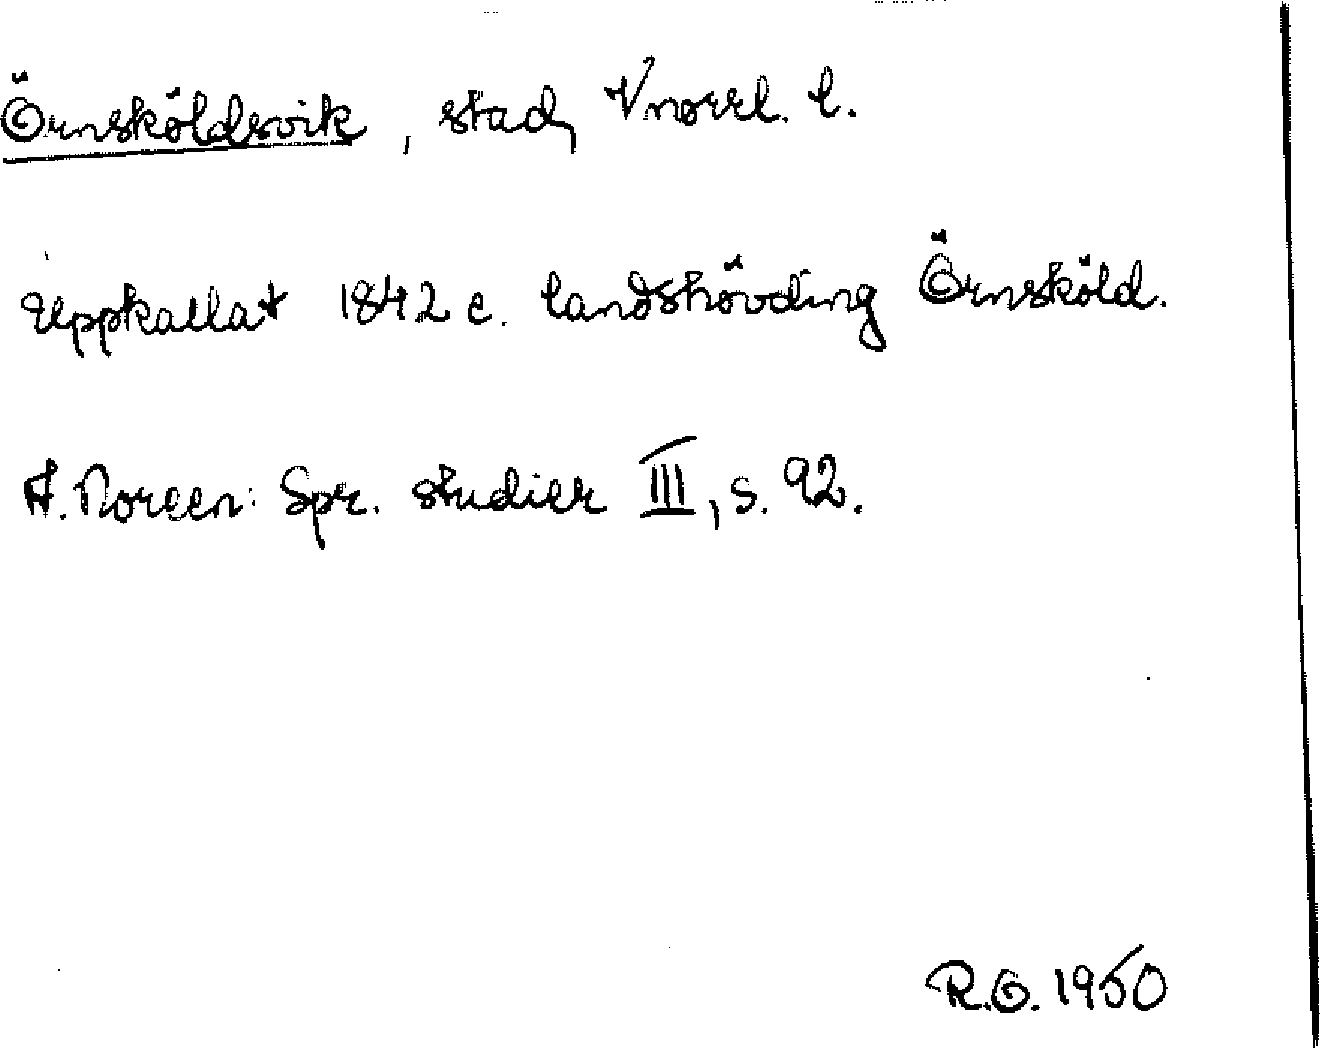 Örnsköldsvik, stad, Vnorrl. l.
Uppkallat 1842 e. landshövding Örnsköld.
A. Noreen: Spr. studier III, s. 92.
R.O. 1950